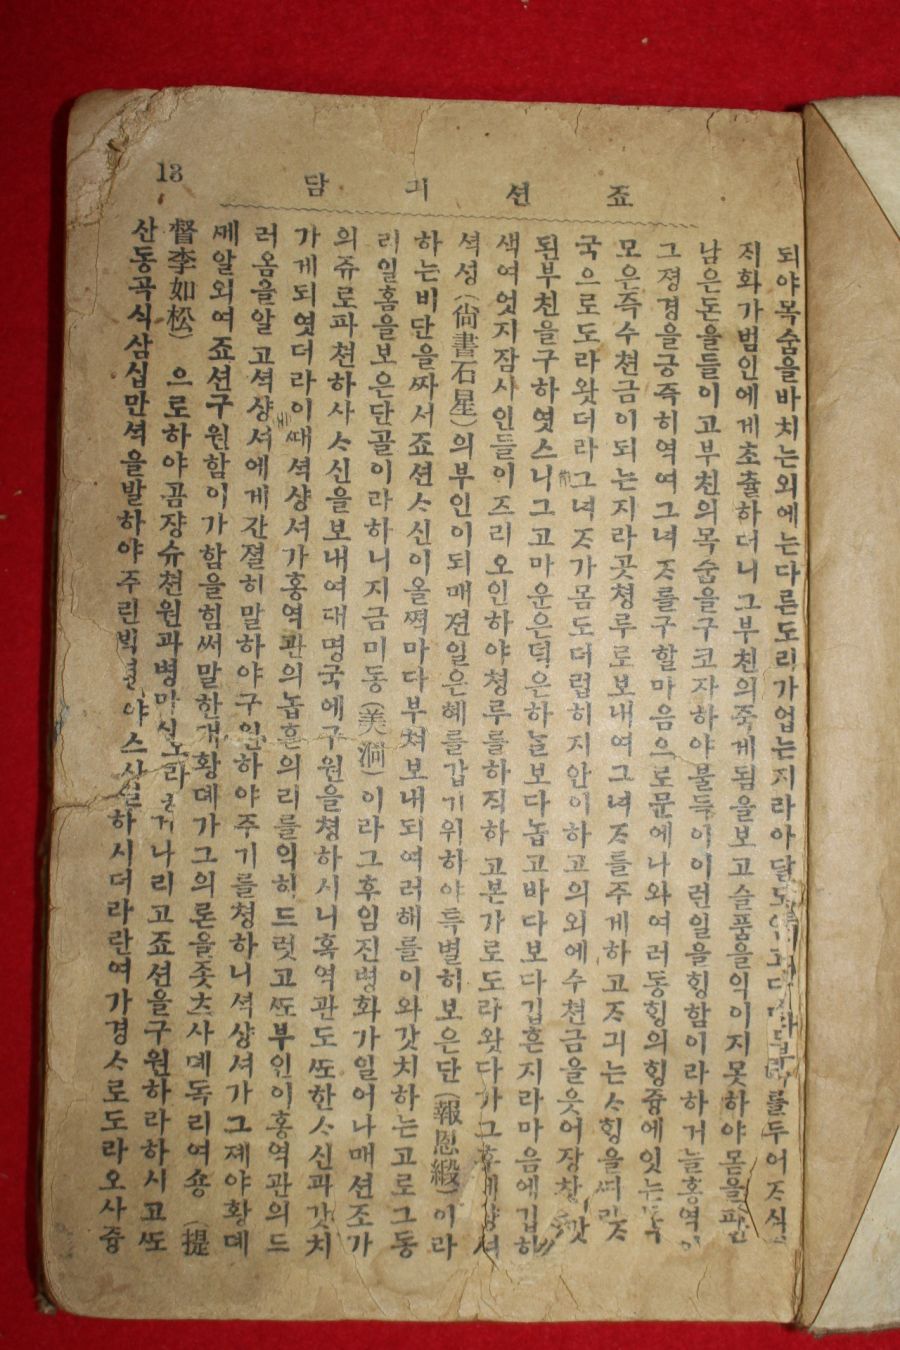 13
죠션긔담
되야목숨을바치는외에는다른도리가업는지라아달
저화가범인에게초츌하더니그부친의죽게됨을보고슬품을익이지못하야몸을파
남은돈을들이고부친의목숨을구코자하야불득이이런일을힝함이라하거늘홍역
그졍경을긍측히역여그녀ᄌᆞ를구할마음으로문에나와여러동힝의힝즁에잇는
모은즉수쳔금이되는지라곳쳥루로보내여그녀ᄌᆞ를주게하고ᄌᆞ긔는ᄉᆞ힝을ᄯᅡ라
국으로도라왓더라그녀ᄌᆞ가몸도더럽히지안이하고의외에수쳔금을웃어장찻
된부친을구하엿스니그고마운은덕은하날보다놉고바다보다깁흔지라마음에깁히
색여엇지잠사인들이즈리오인하야쳥루를하직하고본가로도라왓다가그후
셕성(尙書石星)의부인이되매젼일은혜를갑기위하야특별히보은단(報恩緞)이라
하는비단을짜서죠션ᄉᆞ신이올ᄶᅥᆨ마다부쳐보내되여러해를이와갓치하는고로그동
리일홈을보은단골이라하니지금미동(美洞)이라그후임진병화가일어나매션조가
의쥬로파쳔하사ᄉᆞ신을보내여대명국에구원을쳥하시니혹역관도ᄯᅩ한ᄉᆞ신과갓치
가게되엿더라이ᄯᅢ셕샹셔가홍역관의놉흔의리를익히드럿고ᄯᅩ부인이홍역관의드
러옴을알고셕샹셔에게간졀히말하야구원하야주기를쳥하니셕샹셔가그졔야황뎨
ᄭᅦ알외여죠션구원함이가함을힘써말한대황뎨가그의론을좃ᄎᆞ사뎨독리여숑(提
督李如松)으로하야곰쟝슈쳔원과병마 거나리고죠션을구원하라하시고ᄯᅩ
산동곡식삼십만셕을발하야주린빅셩 하시더라란여가경ᄉᆞ로도라오사즁